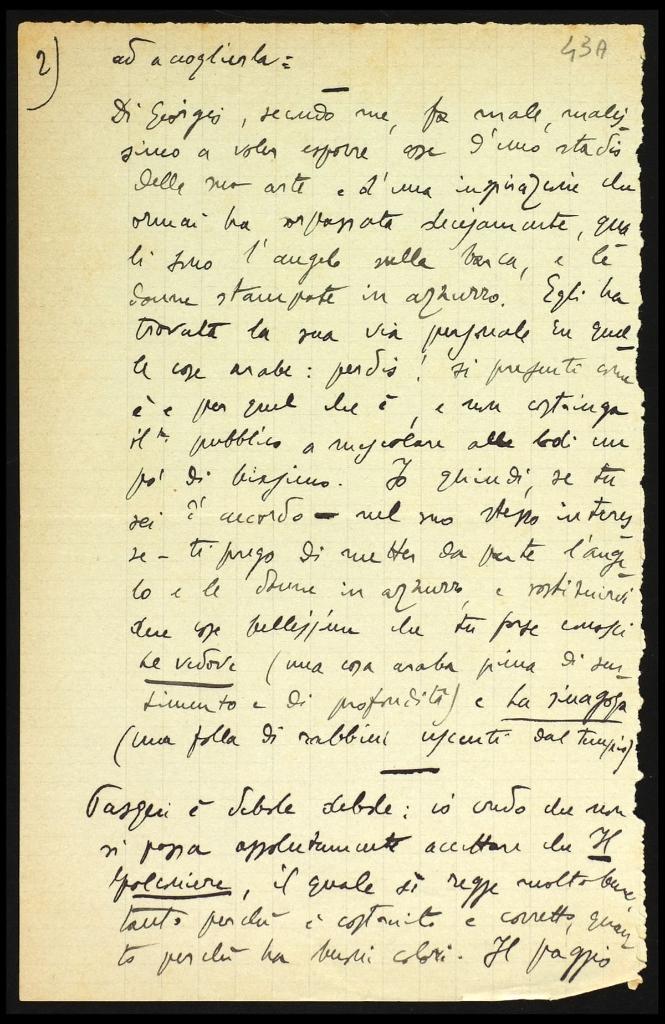 2) ad accoglierla =
43A
Di Giorgio, secondo me, fa male, malis
simo a voler esporre cose d'uno stadio
della sua arte e d'una inspirazione che
ormai ha sorpassata decisamente, qua
li sono l'angelo sulla barca, e le
donne stampate in azzurro. Egli ha
trovata la sua via personale in quel
le cose arabe: perdio! si presenti come
è e per quel che è, e non costringa
il pubblico a mescolare alle lodi un
po' di biasimo. Io quindi, se tu
sei d'accordo — nel suo stesso interes
se — ti prego di metter da parte l'ange
lo e le donne in azzurro, e sostituirvi
due cose bellissime che tu forse conosci
Le vedove (una cosa araba piena di sen
timento e di profondità) e La sinagoga
(una folla di rabbini uscenti dal tempio)
è debole debole: io credo che non
si possa assolutamente accettare che Il
falconiere, il quale si regge molto bene,
tanto perché è costruito e corretto, quan
to perché ha buoni colori. Il paggio